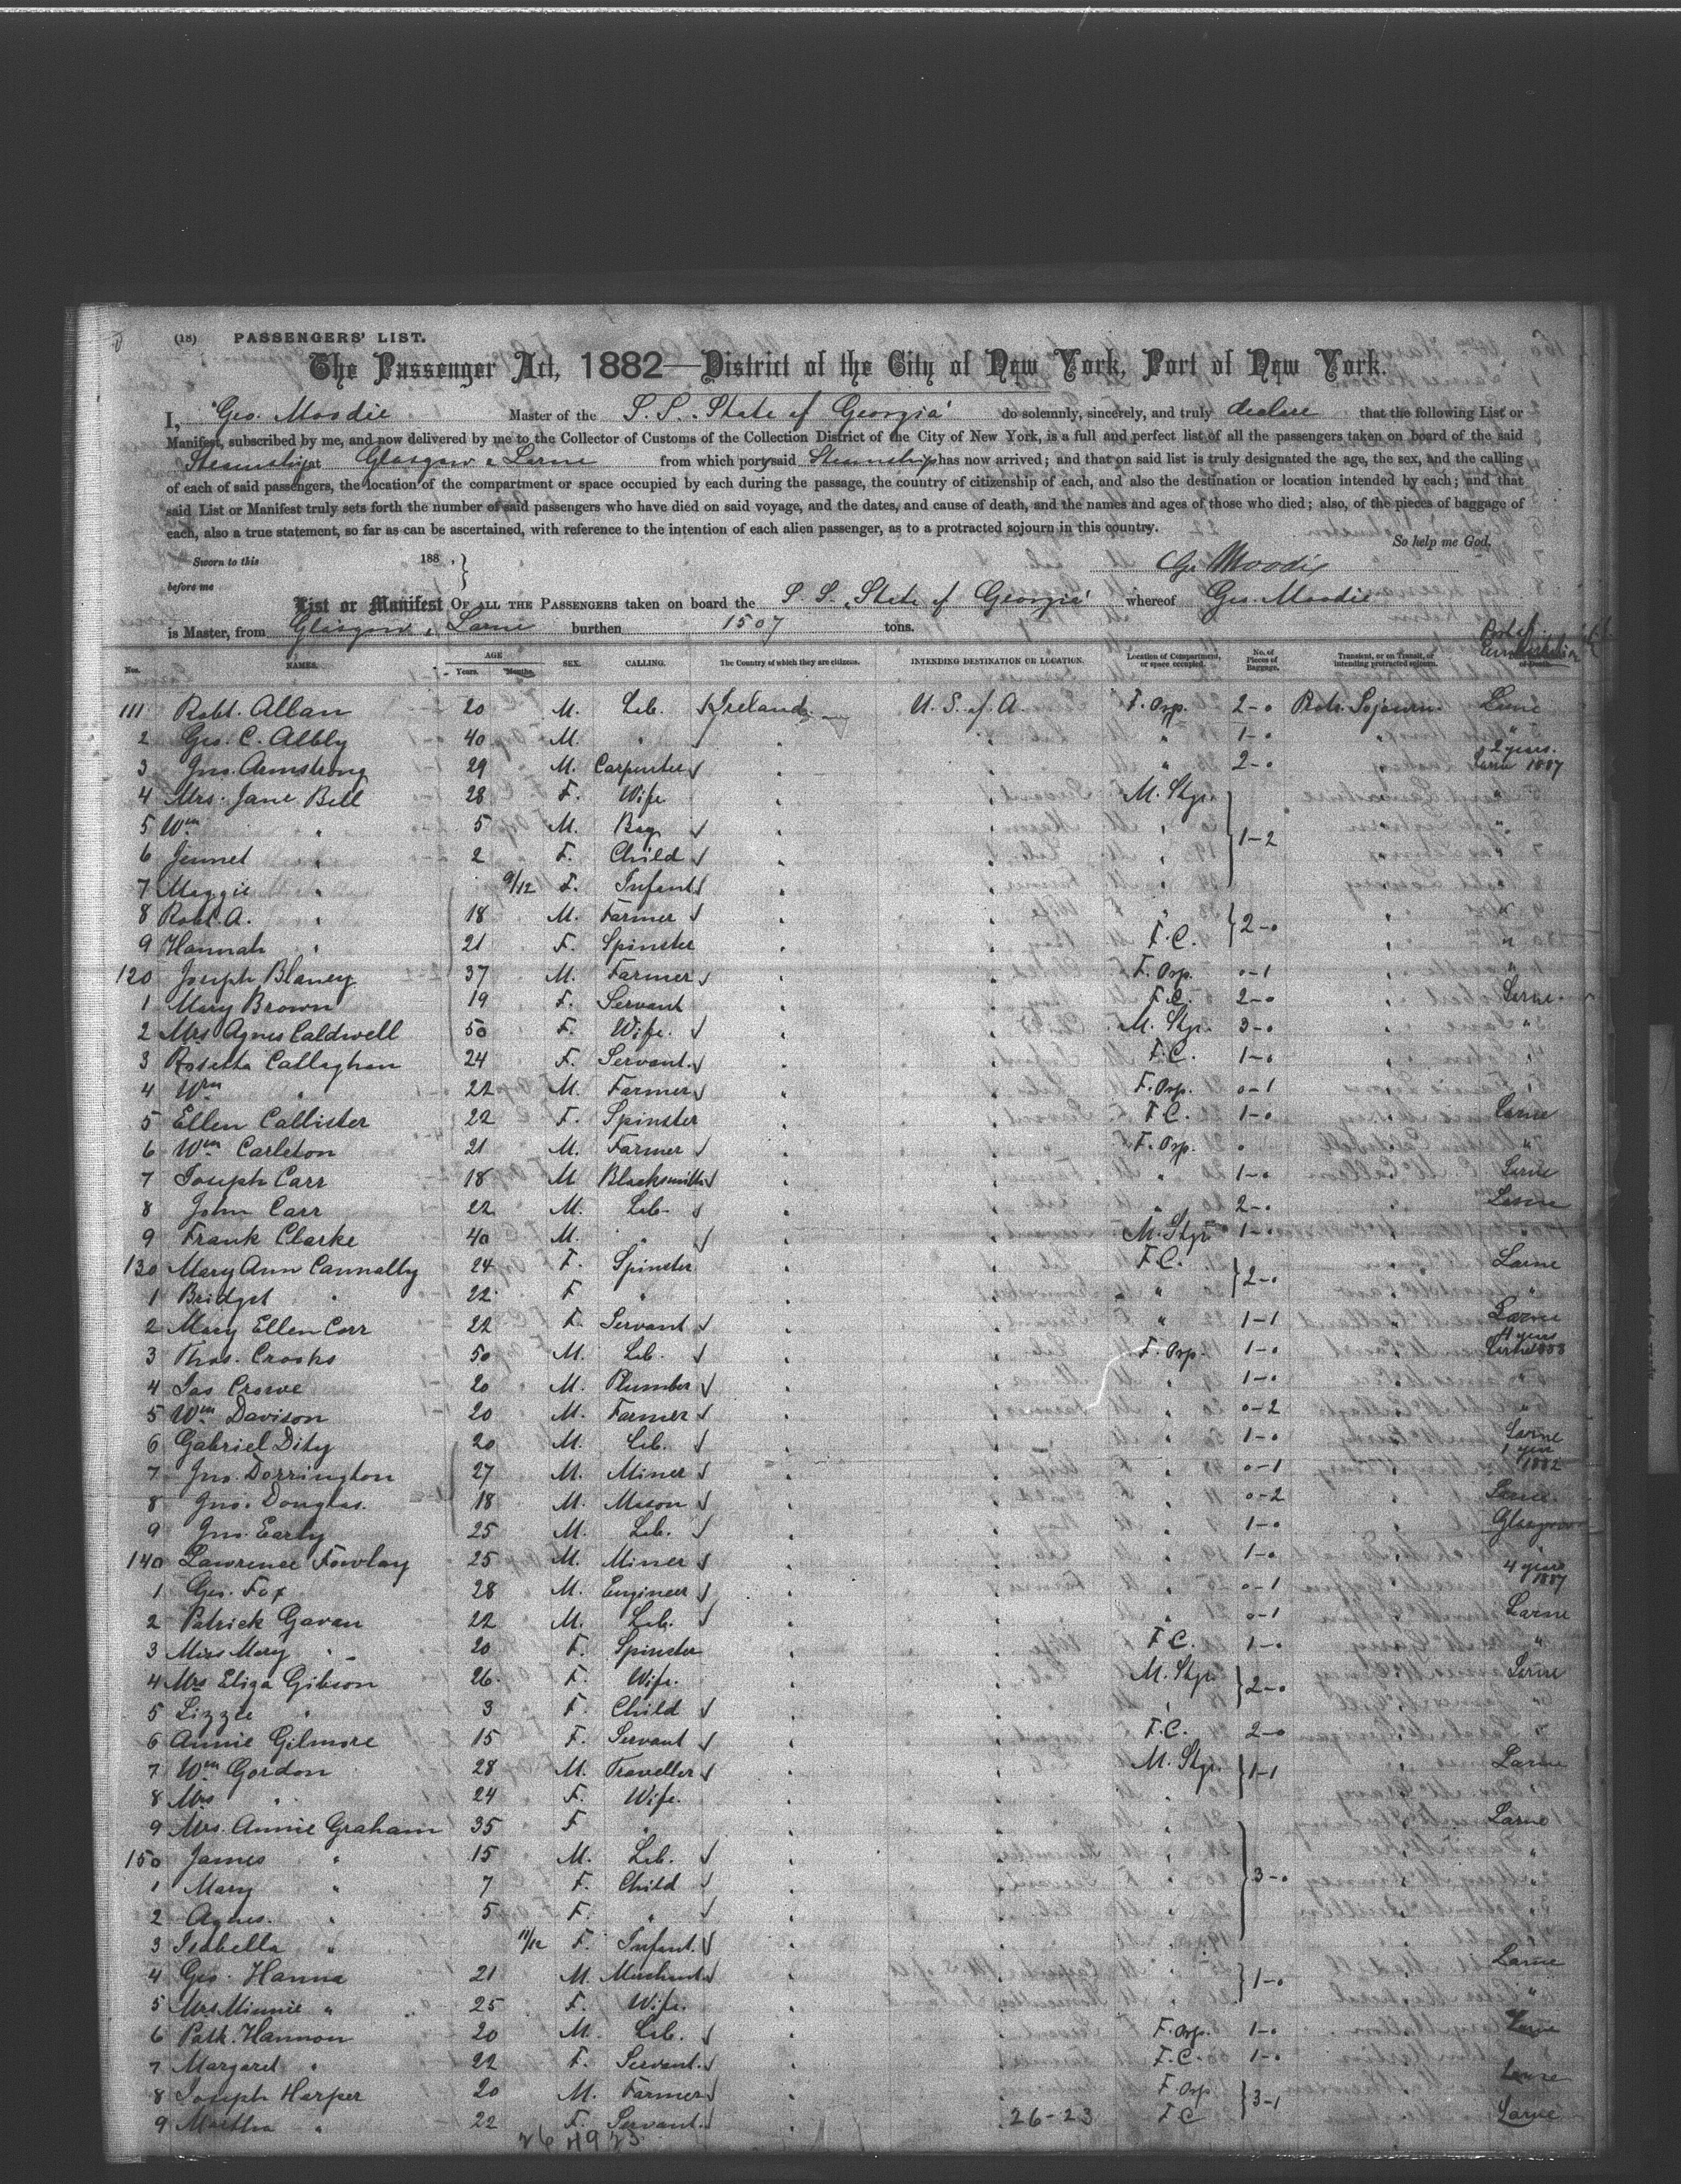 (18) PASSENGERS' LIST.
The Passenger Act, 1882—District of the City of New York, Port of New York.
I, Geo. Moodie Master of the S.S. "State of Georgia" do solemnly, sincerely, and truly declare that the following List or
Manifest, subscribed by me, and now delivered by me to the Collector of Customs of the Collection District of the City of New York, is a full and perfect list of all the passengers taken on board of the said
Steamship at Glasgow & Larne from which port said Steamship has now arrived; and that on said list is truly designated the age, the sex, and the calling
of each of said passengers, the location of the compartment or space occupied by each during the passage, the country of citizenship of each, and also the destination or location intended by each; and that
said List or Manifest truly sets forth the number of said passengers who have died on said voyage, and the dates, and cause of death, and the names and ages of those who died; also, of the pieces of baggage of
each, also a true statement, so far as can be ascertained, with reference to the intention of each alien passenger, as to a protracted sojourn in this country.
So help me God.
Sworn to this 188 .
before me
Geo Moodie
List or Manifest OF ALL THE PASSENGERS taken on board the S.S. "State of Georgia" whereof Geo. Moodie
is Master, from Glasgow & Larne burthen 1507 tons.
Nos. NAMES. AGE Years. Months. SEX. CALLING. The Country of which they are citizens. INTENDING DESTINATION OR LOCATION. Location of Compartment, or space occupied. No. of Pieces of Baggage. Transient, or on Transit, or intending protracted sojourn. Port of Embarkation
111 Robt. Allan 20 M. Lab. Ireland U.S. of A. F. Orp. 2-0 Prot. Sojourn. Larne
2 Geo. C. Albly 40 M. " " " " 1-0 " "
3 Jno. Armstrong 29 M. Carpenter " " " 2-0 " 2 years. Larne 1887
4 Mrs. Jane Bell 28 F. Wife " " M. Stge. "
5 Wm " 5 M. Boy " " " 1-2 "
6 Jennet " 2 F. Child " " " "
7 Maggie " 9/12 F. Infant " " "
8 Robt. A. " 18 M. Farmer " " " 2-0 " "
9 Hannah " 21 F. Spinster " " F.C. "
120 Joseph Blaney 37 M. Farmer " " F. Orp. 0-1 " "
1 Mary Brown 19 F. Servant " " F.C. 2-0 " Larne
2 Mrs Agnes Caldwell 50 F. Wife. " " M. Stge. 3-0 " "
3 Rosetta Callaghan 24 F. Servant. " " F.C. 1-0 "
4 Wm " 22 M. Farmer " " F. Orp. 0-1 " "
5 Ellen Callister 22 F. Spinster " " F.C. 1-0 " Larne
6 Wm Carleton 21 M. Farmer " " F. Orp. " "
7 Joseph Carr 18 M Blacksmith " " " 1-0 " Larne
8 John Carr 22 M. Lab. " " " 2-0 " Larne
9 Frank Clarke 40 M. " " " M. Stge 1-0 " "
130 Mary Ann Cannally 24 F. Spinster " " F.C. 2-0 " Larne
1 Bridget " 22 F " " " " "
2 Mary Ellen Corr 22 F. Servant " " " 1-1 " Larne
3 Thos. Crooks 50 M. Lab. " " F. Orp. 1-0 " 4 years Larne 1888
4 Jas Crowe 20 M. Plumber " " " 1-0 " "
5 Wm Davison 20 M. Farmer " " " 0-2 " "
6 Gabriel Dity 20 M. Lab. " " " 1-0 " Larne
7 Jno. Dorrington 27 M. Miner " " " 0-1 " 1 year 1882
8 Jno. Douglas. 18 M. Mason " " " 0-2 " Larne
9 Jno. Early 25 M. Lab. " " " 1-0 " Glasgow
140 Lawrence Fowlay 25 M. Miner " " " 1-0 " "
1 Geo. Fox 28 M. Engineer " " " 0-1 " 4 years 1887
2 Patrick Gavan 22 M. Lab. " " " 0-1 " Larne
3 Miss Mary " 20 F. Spinster " " F.C. 1-0 " "
4 Mrs Eliza Gibson 26 F. Wife. " " M. Stge. 2-0 " Larne
5 Lizzie " 3 F. Child " " " "
6 Annie Gilmore 15 F. Servant " " F.C. 2-0 " "
7 Wm Gordon 28 M. Traveller " " M. Stge. 1-1 " Larne
8 Mrs " 24 F. Wife. " " " " "
9 Mrs. Annie Graham 35 F " " " " " Larne
150 James " 15 M. Lab. " " " 3-0 " "
1 Mary " 7 F. Child " " " " "
2 Agnes. " 5 F. " " " " " "
3 Isabella " 11/12 F. Infant. " " " " "
4 Geo. Hanna 21 M. Merchant " " " 1-0 " Larne
5 Mrs Minnie " 25 F. Wife. " " " " "
6 Patk. Hannon 20 M. Lab. " " F. Orp. 1-0 " Larne
7 Margaret " 22 F. Servant. " " F.C. 1-0 "
8 Joseph Harper 20 M. Farmer " " F Orp. 3-1 " Larne
9 Martha " 22 F. Servant. " 26-23 F C " Larne
26 49 23